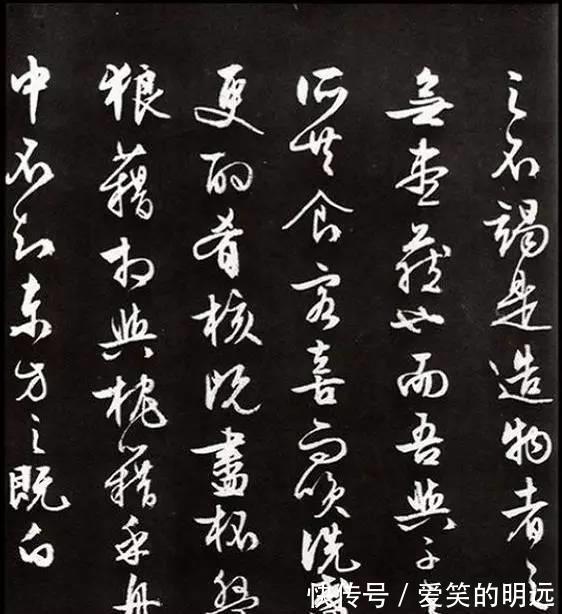 之不竭是造物者之
無盡藏也而吾與子
所共食客喜而咲洗盞
更酌肴核既盡杯盤
狼藉相與枕藉乎舟
中不知東方之既白
快传号 / 爱笑的明远